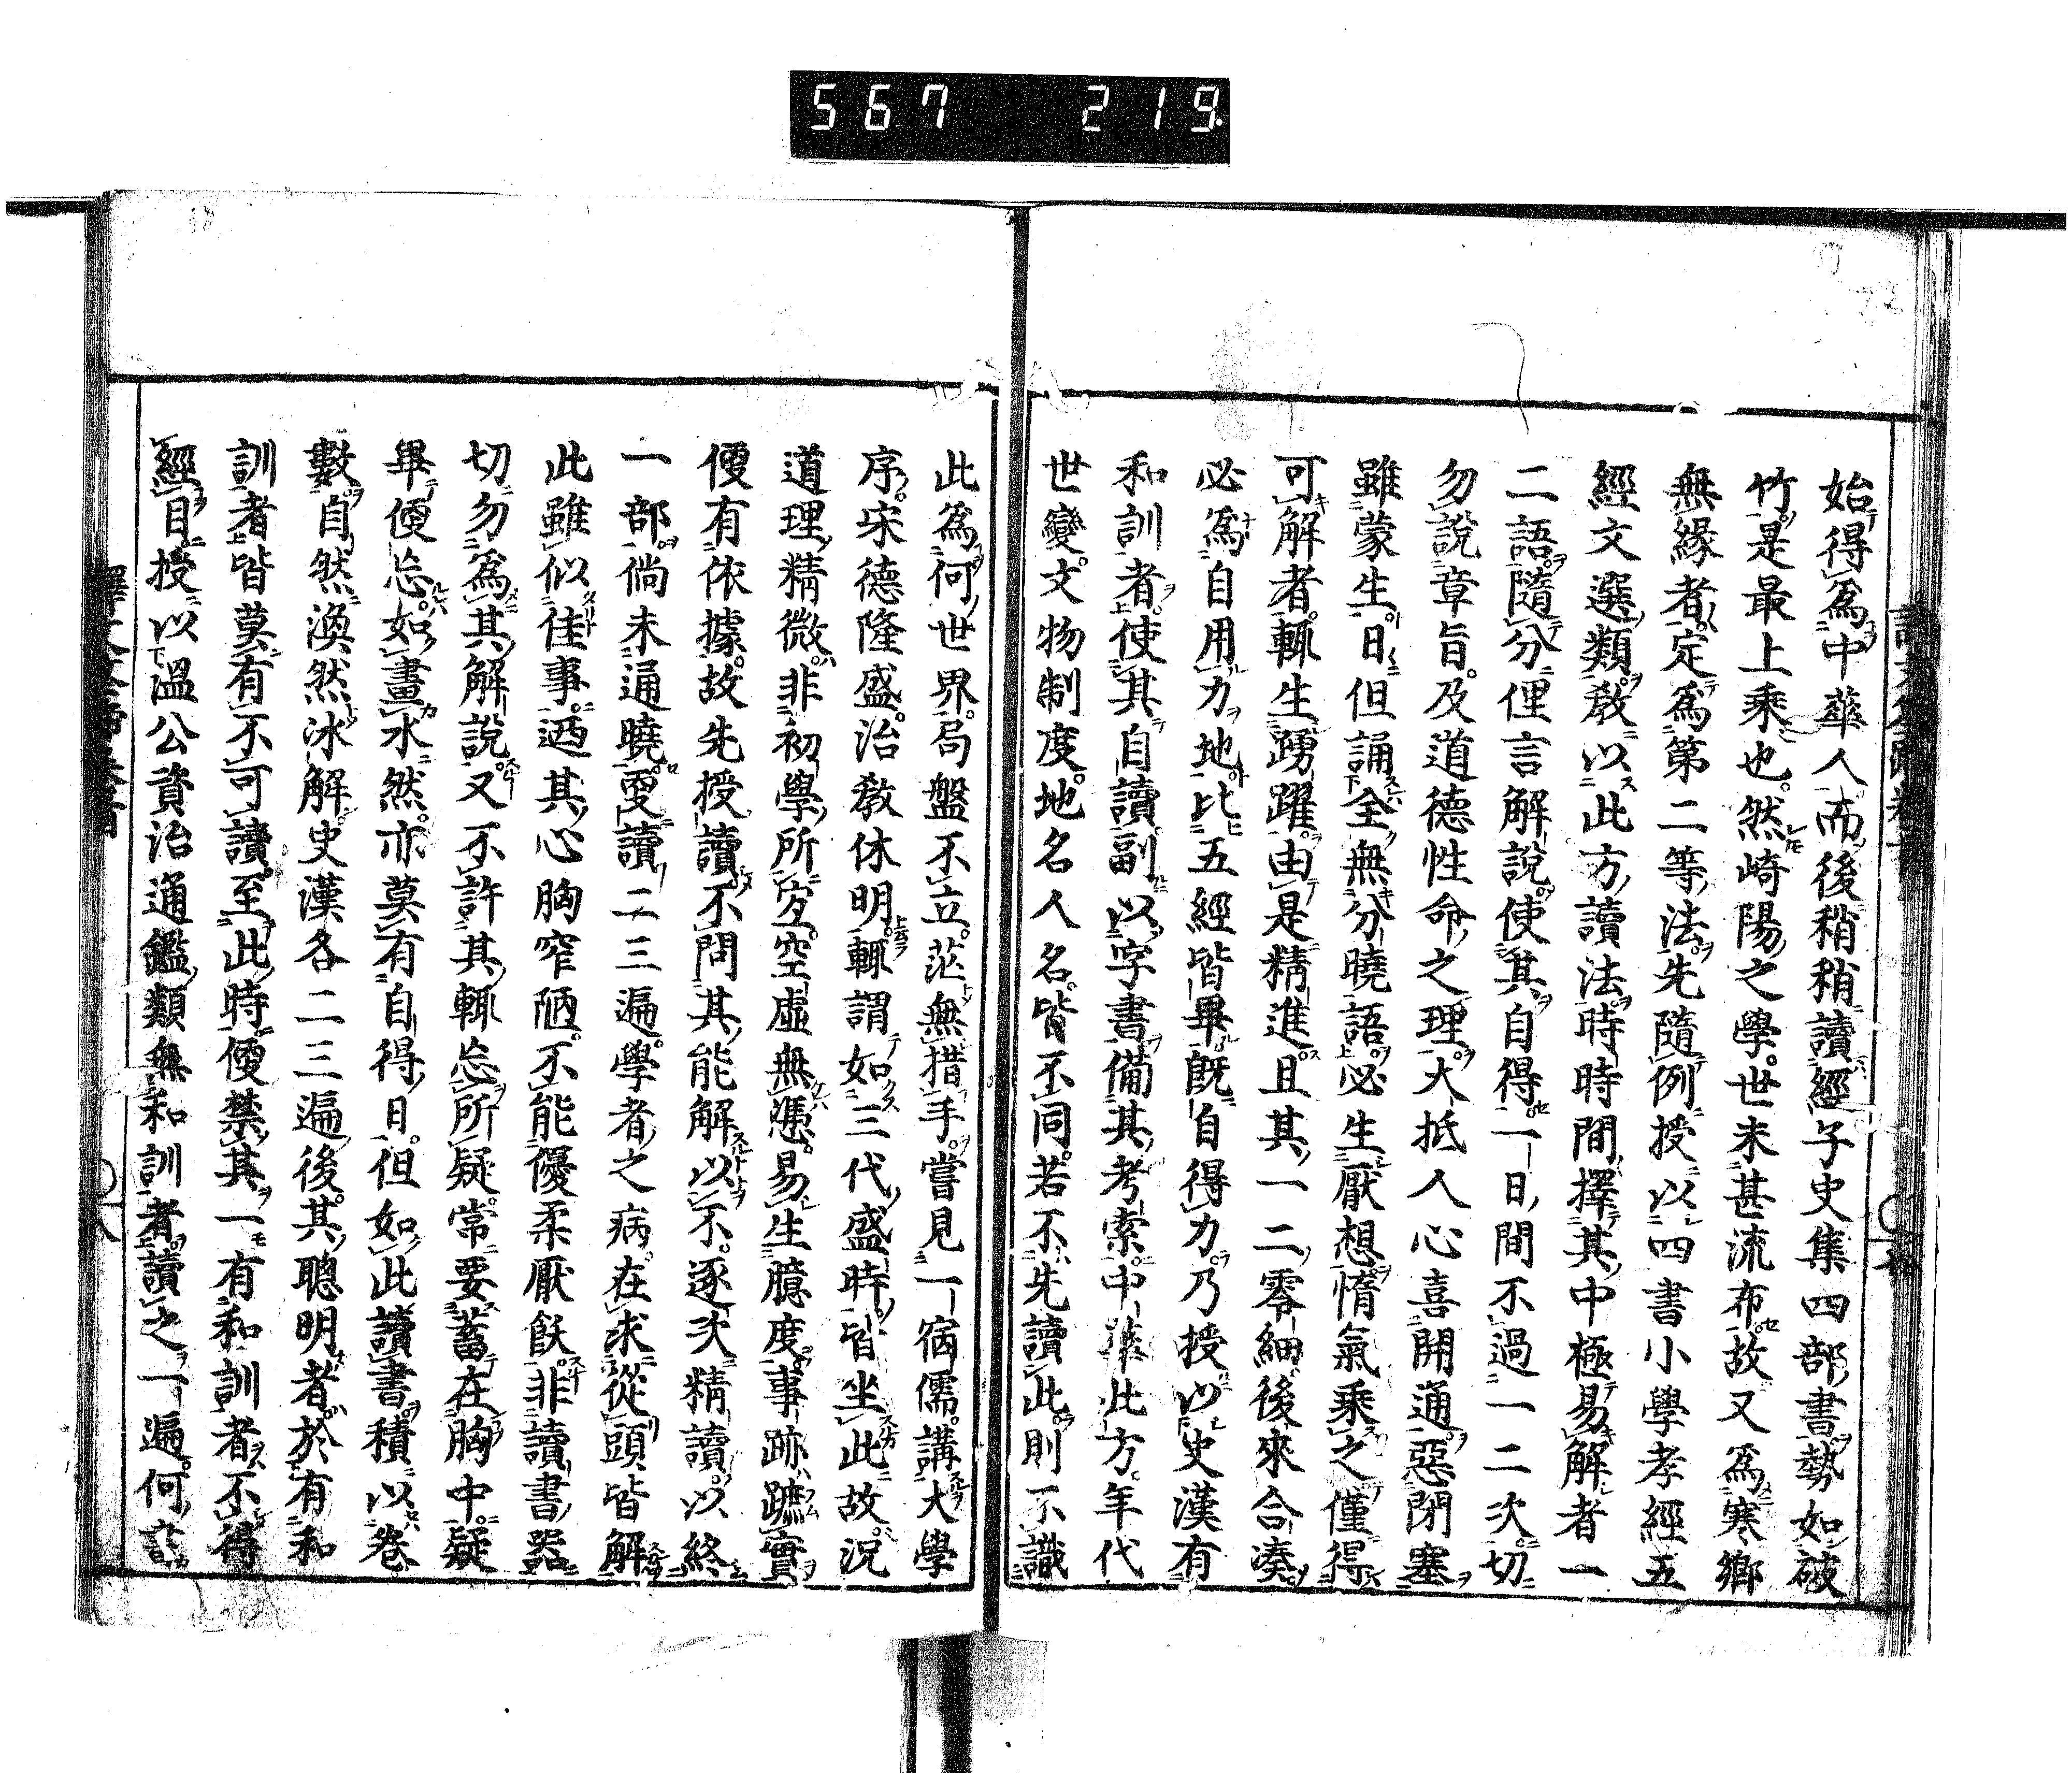 567 219
始得爲中華人而後稍稍讀經子史集四部書勢如破
竹是最上乘也然崎陽之學世未甚流布故又爲寒鄉
無緣者定爲第二等法先隨例授以四書小學孝經五
經文選類教以此方讀法時時間擇其中極易解者一
二語隨分俚言解說使其自得一日間不過一二次切
勿說章旨及道德性命之理大抵人心喜開通惡閉塞
雖蒙生日但誦全無分曉語必生厭想惰氣乘之僅得
可解者輒生踴躍由是精進且其一二零細後來合湊
必爲自用力地比五經皆畢既自得力乃授以史漢有
和訓者使其自讀副以字書備其考索中華此方年代
世變文物制度地名人名皆不同若不先讀此則不識
此爲何世界局盤不立茫無措手嘗見一宿儒講大學
序宋德隆盛治教休明輒謂如三代盛時皆坐此故況
道理精微非初學所宜空虛無憑易生臆度事跡蹠實
便有依據故先授讀不問其能解以不逐次精讀以終
一部倘未通曉更讀二三遍學者之病在求從頭皆解
此雖似佳事迺其心胸窄陋不能優柔厭飫非讀書器
切勿爲其解說又不許其輒忘所疑常要蓄在胸中疑
畢便忘如畫水然亦莫有自得日但如此讀書積以卷
數自然渙然冰解史漢各二三遍後其聰明者於有和
訓者皆莫有不可讀至此時便禁其一有和訓者不得
經目授以溫公資治通鑑類無和訓者讀之一遍何